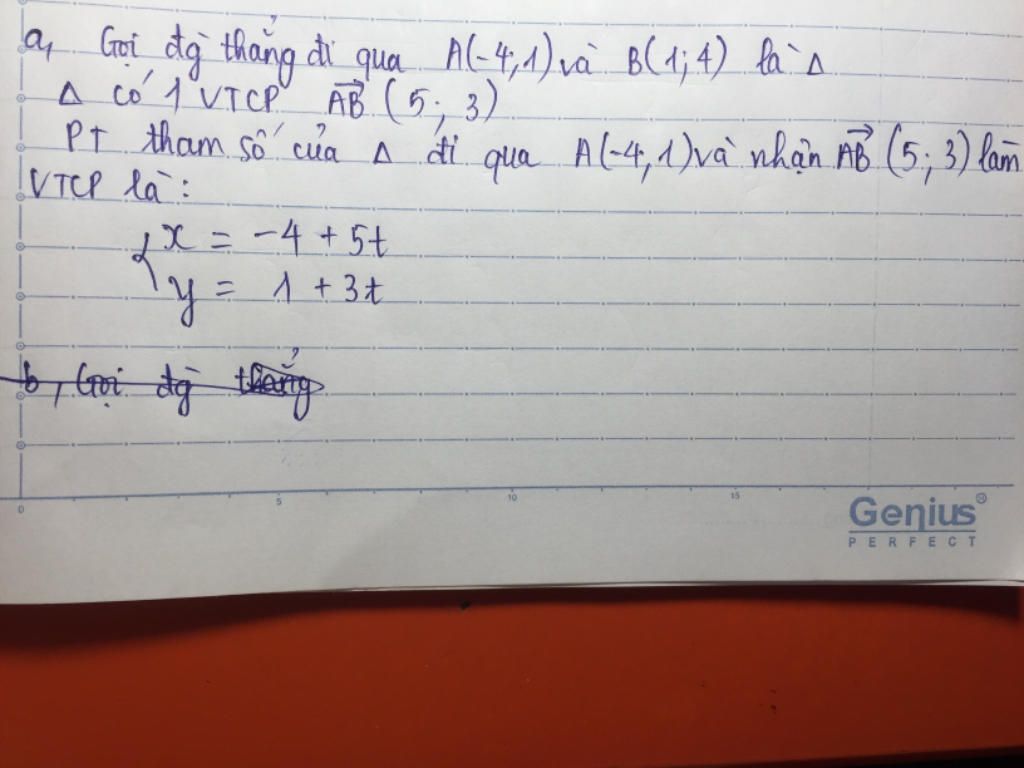 a, Gọi đg thẳng đi qua A(-4;1) và B(1;4) là Δ
Δ có 1 VTCP AB→ (5; 3)
PT tham số của Δ đi qua A(-4;1) và nhận AB→ (5; 3) làm
VTCP là:
{ x = -4 + 5t
y = 1 + 3t
b, Gọi đg thẳng
0 5 10 15
Genius®
PERFECT